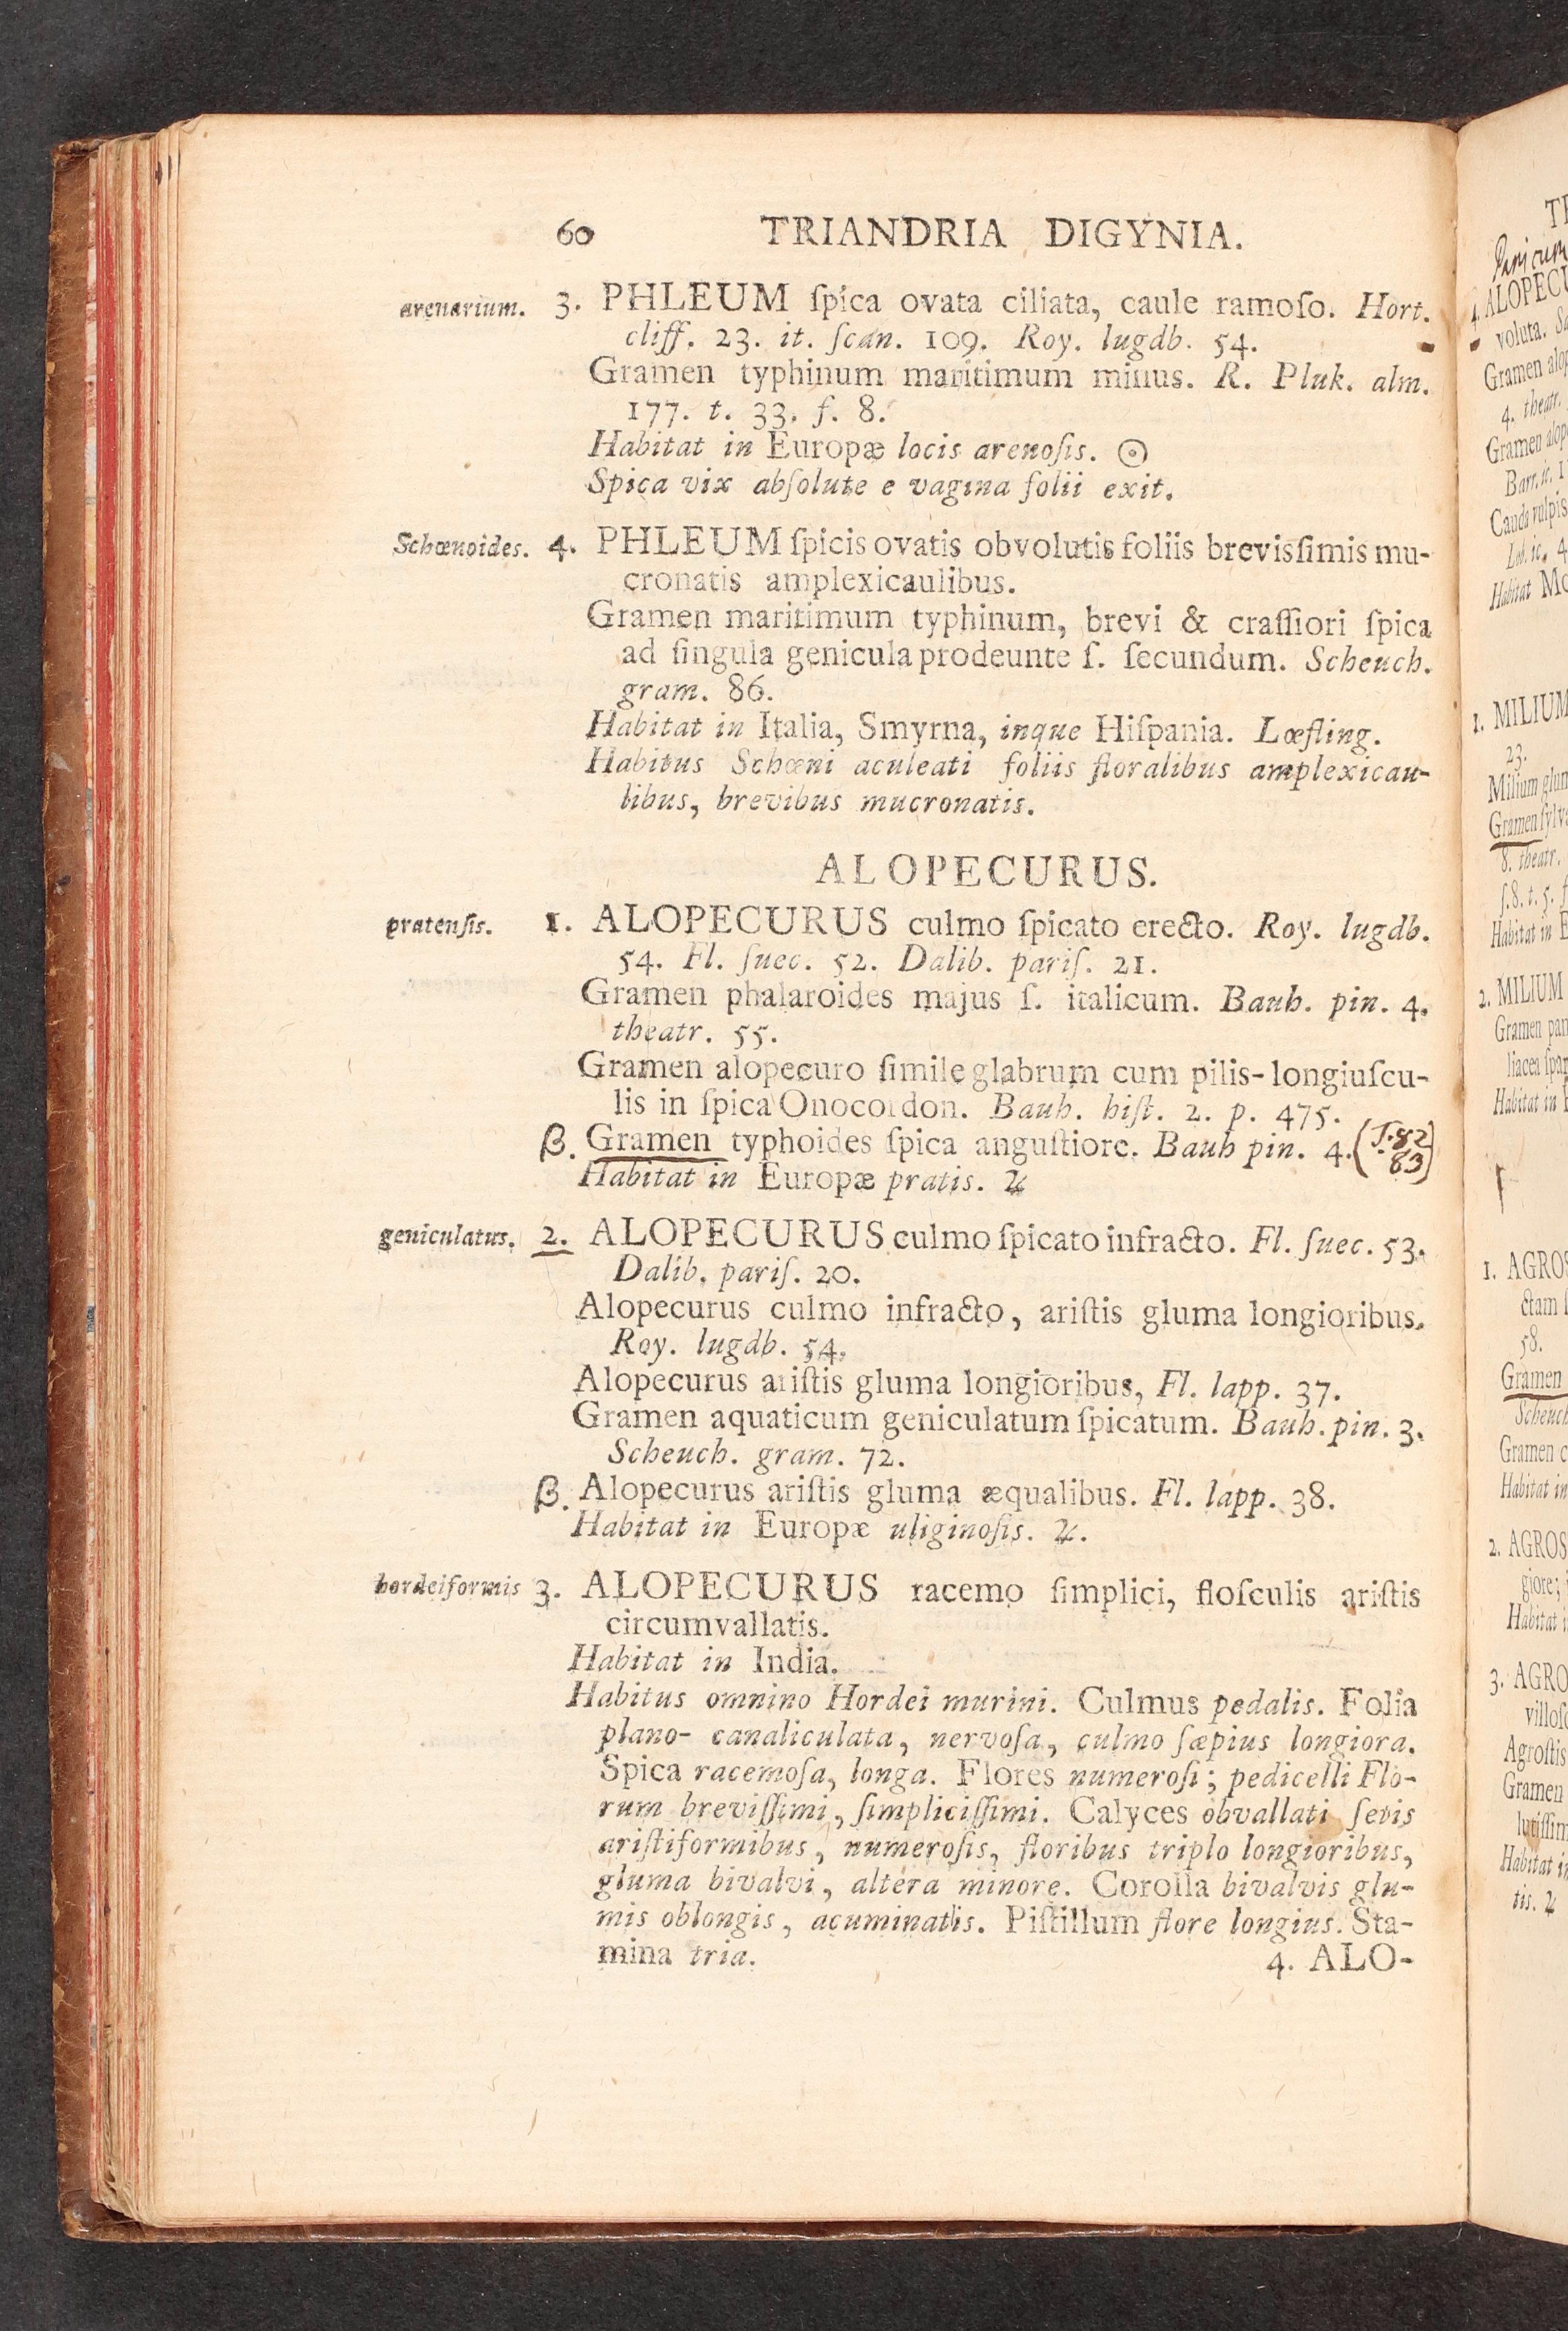 60 TRIANDRIA DIGYNIA.
arenarium. 3. PHLEUM ſpica ovata ciliata, caule ramoſo. Hort.
cliff. 23. it. ſcan. 109. Roy. lugdb. 54.
Gramen typhinum maritimum minus. R. Pluk. alm.
177. t. 33. f. 8.
Habitat in Europæ locis arenoſis. ☉
Spica vix abſolute e vagina folii exit.
Schœnoides. 4. PHLEUM ſpicis ovatis obvolutis foliis brevisſimis mu-
cronatis amplexicaulibus.
Gramen maritimum typhinum, brevi & craſſiori ſpica
ad ſingula genicula prodeunte ſ. ſecundum. Scheuch.
gram. 86.
Habitat in Italia, Smyrna, inque Hiſpania. Lœfling.
Habitus Schœni aculeati foliis floralibus amplexicau-
libus, brevibus mucronatis.
ALOPECURUS.
pratenſis. 1. ALOPECURUS culmo ſpicato erecto. Roy. lugdb.
54. Fl. ſuec. 52. Dalib. pariſ. 21.
Gramen phalaroides majus ſ. italicum. Bauh. pin. 4.
theatr. 55.
Gramen alopecuro ſimile glabrum cum pilis-longiuſcu-
lis in ſpica Onocordon. Bauh. hiſt. 2. p. 475.
β. Gramen typhoides ſpica anguſtiore. Bauh pin. 4. (T. 82
83)
Habitat in Europæ pratis. ♃
geniculatus. 2. ALOPECURUS culmo ſpicato infracto. Fl. ſuec. 53.
Dalib. pariſ. 20.
Alopecurus culmo infracto, ariſtis gluma longioribus.
Roy. lugdb. 54.
Alopecurus ariſtis gluma longioribus, Fl. lapp. 37.
Gramen aquaticum geniculatum ſpicatum. Bauh. pin. 3.
Scheuch. gram. 72.
β. Alopecurus ariſtis gluma æqualibus. Fl. lapp. 38.
Habitat in Europæ uliginoſis. ♃.
hordeiformis 3. ALOPECURUS racemo ſimplici, floſculis ariſtis
circumvallatis.
Habitat in India.
Habitus omnino Hordei murini. Culmus pedalis. Folia
plano- canaliculata, nervoſa, culmo ſæpius longiora.
Spica racemoſa, longa. Flores numeroſi; pedicelli Flo-
rum breviſſimi, ſimpliciſſimi. Calyces obvallati ſetis
ariſtiformibus, numeroſis, floribus triplo longioribus,
gluma bivalvi, altera minore. Corolla bivalvis glu-
mis oblongis, acuminatis. Piſtillum flore longius. Sta-
mina tria.
4. ALO-
Panicum
4. ALOPECU
voluta.
Gramen alop
4. theatr.
Gramen alop
Barr. ic.
Cauda vulpis
Lob. ic. 4
Habitat Mo
1. MILIUM
23.
Milium glum
Gramen ſylv
8. theatr.
ſ. 8. t. 5. f
Habitat in E
2. MILIUM
Gramen pan
liacea ſpar
Habitat in
1. AGROS
ctam
58.
Gramen
Scheuch
Gramen c
Habitat in
2. AGROS
giore;
Habitat i
3. AGRO
villoſo
Agroſtis
Gramen
lutiſſim
Habitat in
tis. ♃